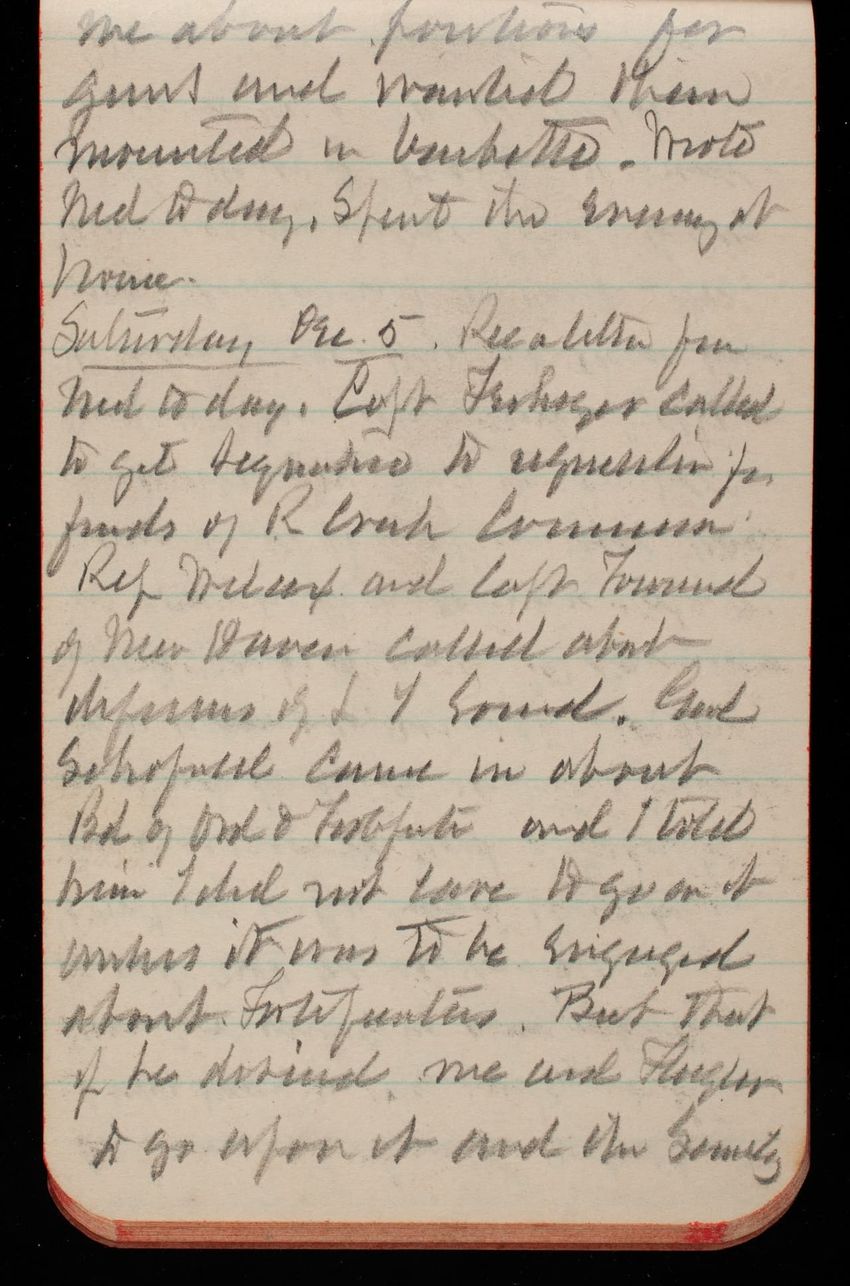 me about positions for
guns and wanted them
mounted in barbette. Wrote
Ned to day. Spent the evening at
home.
Saturday, Dec. 5. Rec a letter from
Ned to day. Capt called
to get signature to requisition for
funds of R Creek Commission
Rep Wilcox and Capt Townsend
of New Haven called about
defenses of L I Sound. Genl
Schofield came in about
Bd of Ord & Fortificati and I told
him I did not care to go on it
unless it was to be engaged
about Fortifications. But that
if he desired me and Flagler
to go upon it and the Secrety